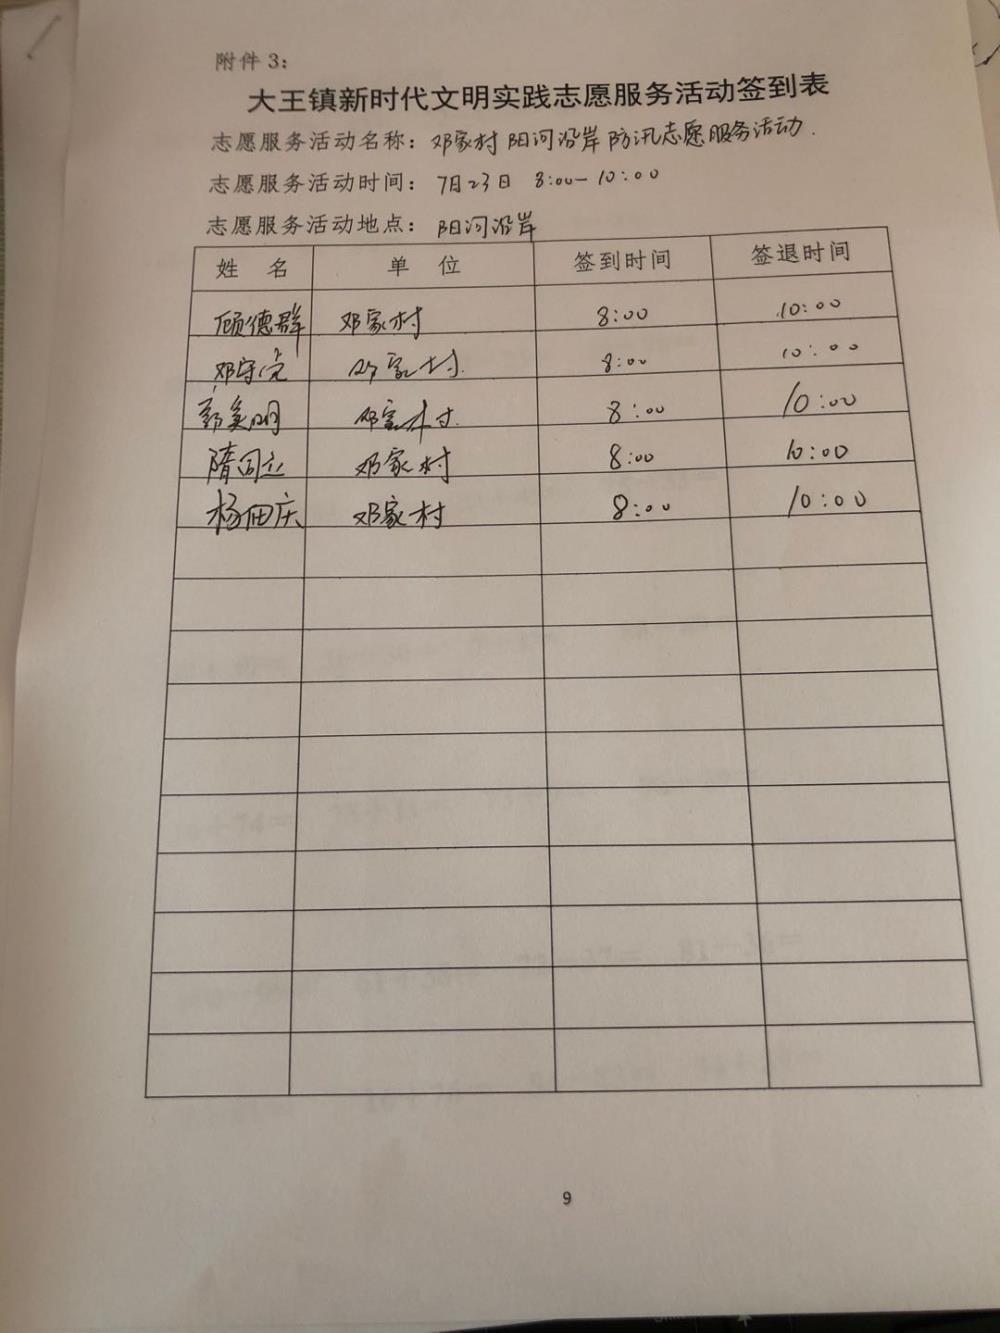 附件 3：
大王镇新时代文明实践志愿服务活动签到表
志愿服务活动名称：邓家村阳河沿岸防汛志愿服务活动.
志愿服务活动时间：7月23日 8:00-10:00
志愿服务活动地点：阳河沿岸
姓 名 单 位 签到时间 签退时间
顾德群 邓家村 8:00 10:00
邓守 邓家村. 8:00 10:00
明 邓家村. 8:00 10:00
隋同立 邓家村 8:00 10:00
杨佃庆 邓家村 8:00 10:00
9